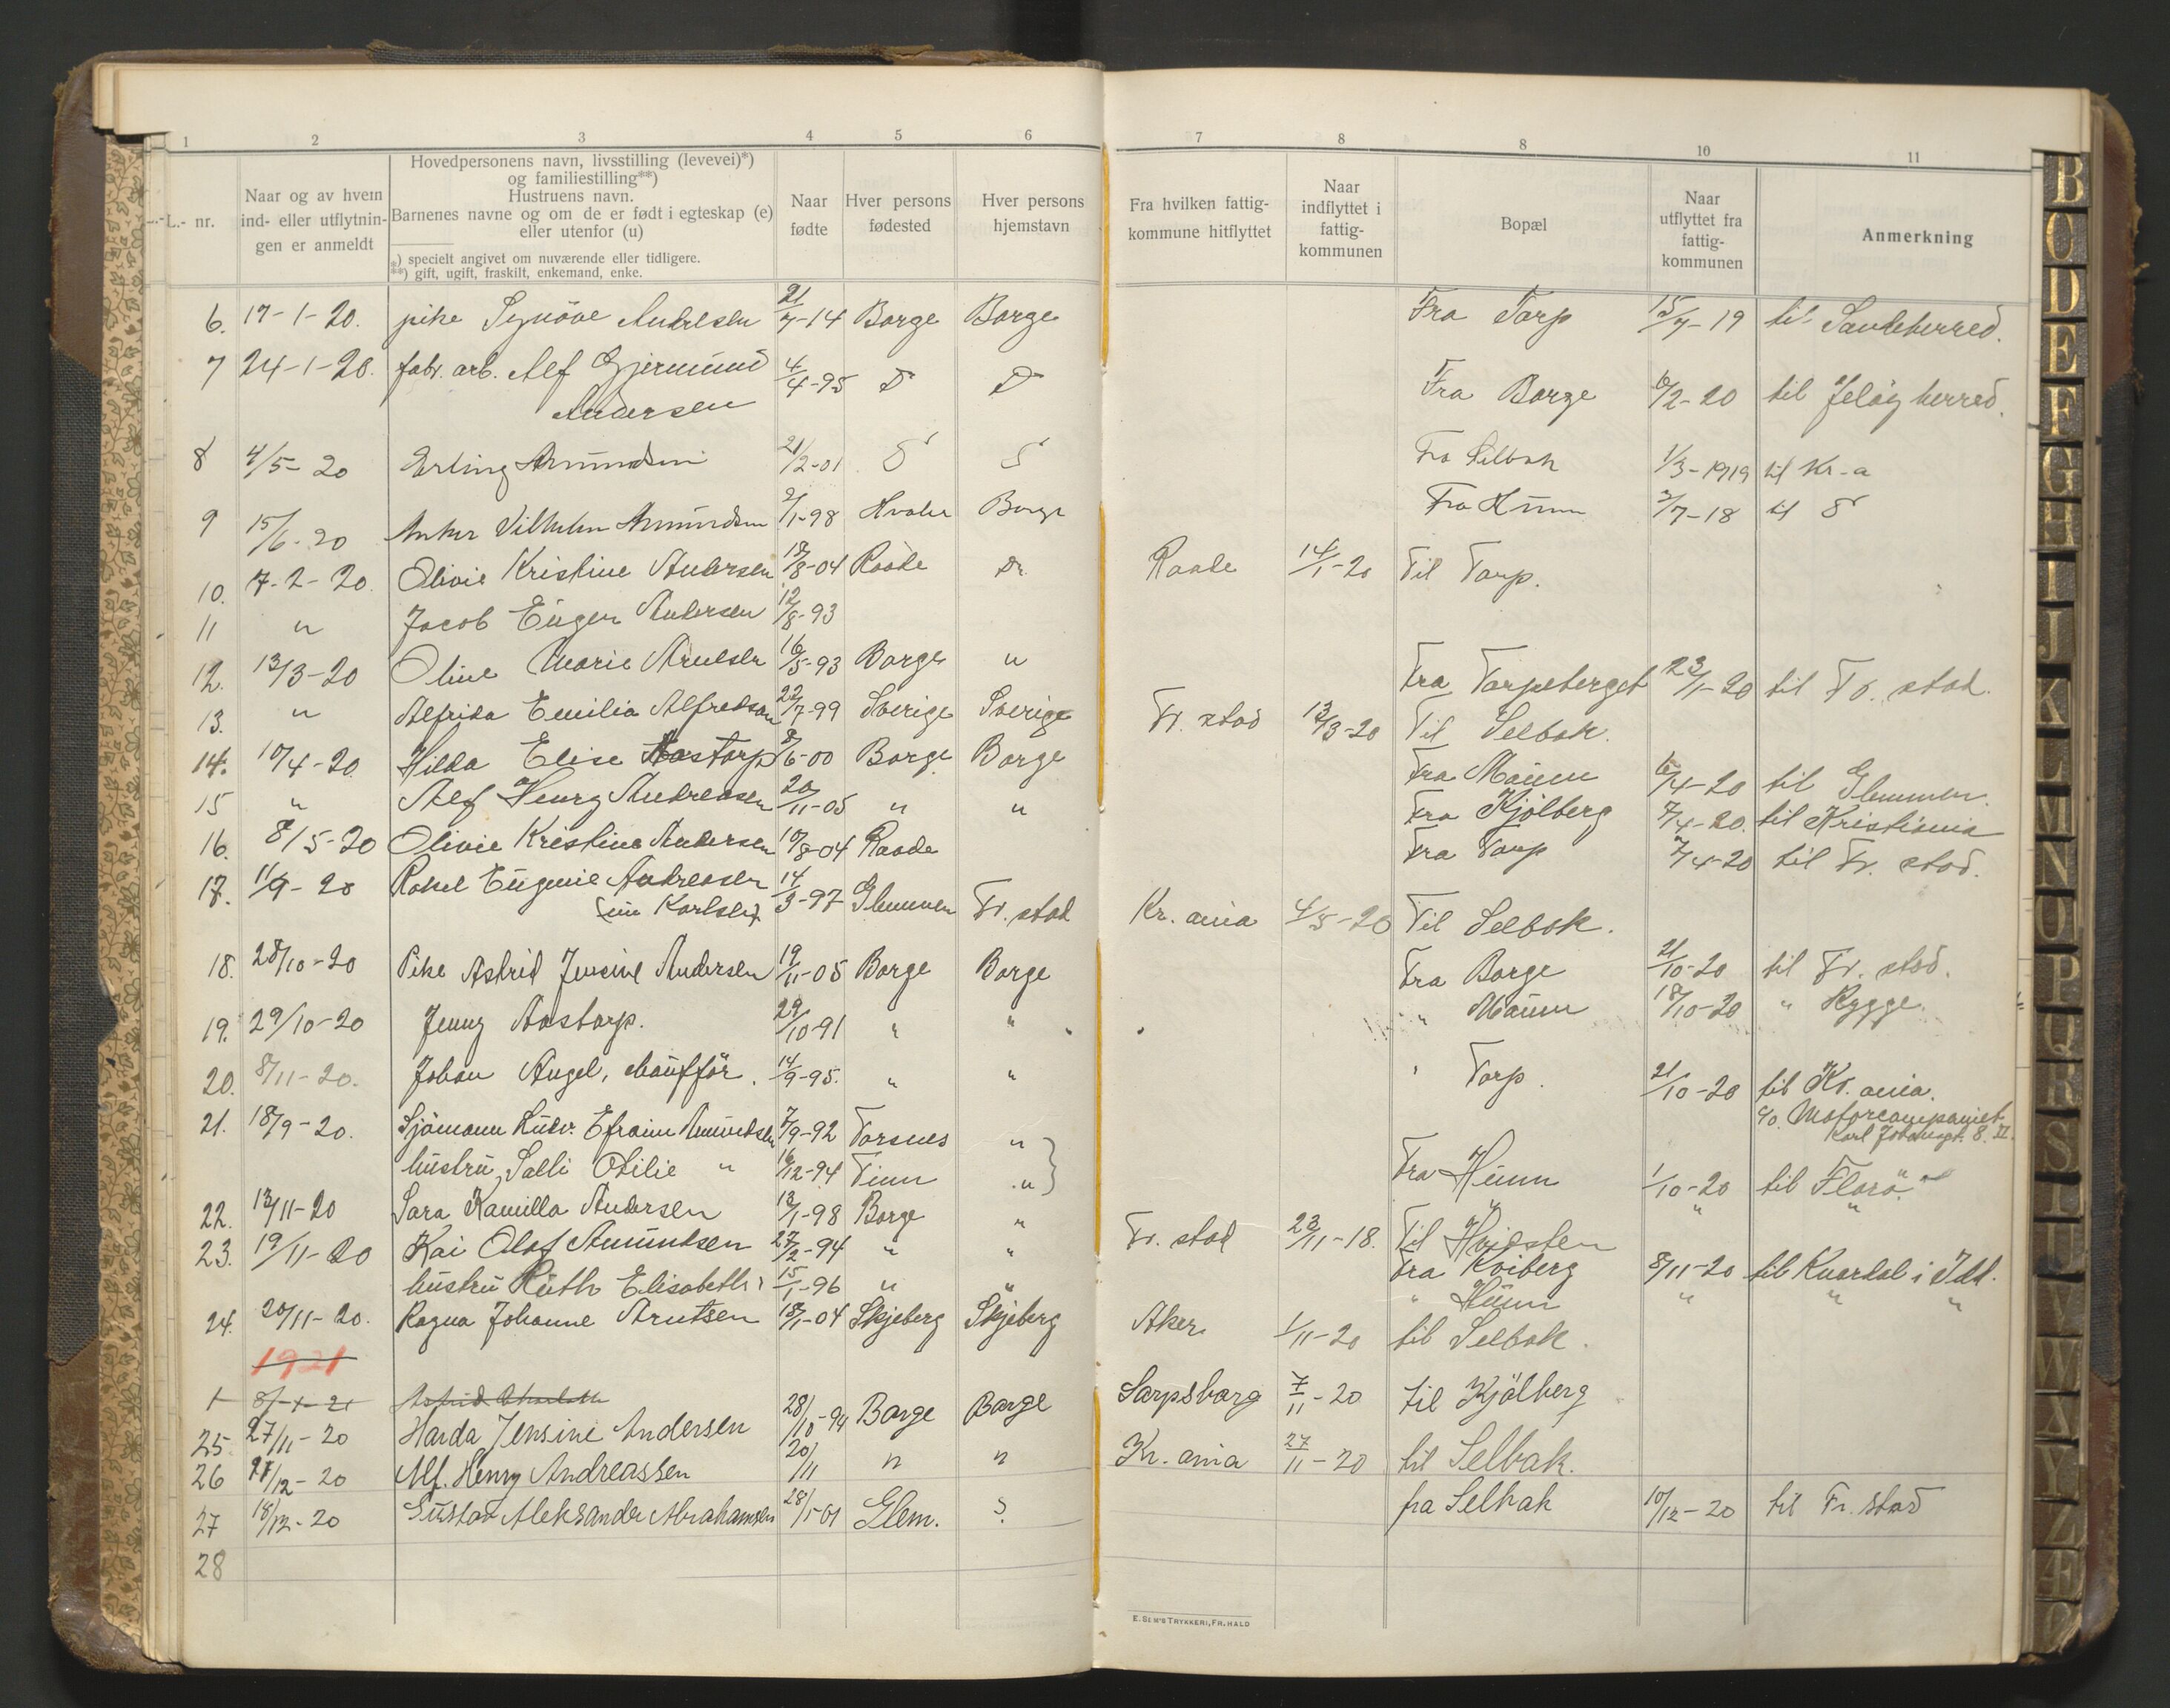 1 2 3 4 5 6 7 8 8 10 11
L.- nr.
Naar og av hvem ind- eller utflytnin- gen er anmeldt
Hovedpersonens navn, livsstilling (levevei)*)
og familiestilling**)
Hustruens navn.
Barnenes navne og om de er født i egteskap (e)
eller utenfor (u)
*) specielt angivet om nuværende eller tidligere.
**) gift, ugift, fraskilt, enkemand, enke.
Naar fødte
Hver persons fødested
Hver persons hjemstavn
Fra hvilken fattig- kommune hitflyttet
Naar indflyttet i fattig- kommunen
Bopæl
Naar utflyttet fra fattig- kommunen
Anmerkning
6. 17-1-20. pike Synöve Andresen 21/7-14 Borge Borge Fra Torp 15/7-19 til Sandeherred.
7 24-1-20. fabr. arb. Alf Gjermund 4/4-95 D D Fra Borge 6/2-20 til Jelöy herred.
Andersen
8 4/5-20 Erling Amundsen 21/2-01 Fra Selbak 1/3-1919 til Kr-a
9 15/6-20 Anker Vilhelm Amundsen 2/1-98 Hvaler Borge Fra Hunn 2/7-18 til
10. 7-2-20. Olivie Kristine Andersen 18/8-04 Raade Do. Raade 14/1-20 Til Torp.
11 " Jacob Eugen Andersen 12/8-93
12. 13/3-20 Oline Marie Arnesen 16/5-93 Borge " Fra Torpeberget 23/1-20 til Fr. stad.
13. " Alfrida Emilia Alfredson 22/7-99 Sverige Sverige Fr. stad 13/3-20 Til Selbak.
14. 10/4-20 Hilda Elise Aastorp 8/6-00 Borge Borge Fra Maum 6/4-20 til Glemmen.
15 " Alf Henry Andreasen 20/11-05 " " Fra Kjölberg 7/4-20. til Kristiania
16. 8/5-20 Olivie Kristine Andersen 18/8-04 Raade Fra Torp 7/4-20 til Fr. stad.
17. 11/9-20 Rakel Eugenie Andreasen 14/3-97 Glemmen Fr. stad Kr. ania 4/5-20 Til Selbak.
Karlsen)
18. 28/10-20 Pike Astrid Jensine Andersen 19/11-05 Borge Borge Fra Borge 21/10-20 til Fr. stad.
19. 29/10-20 Jenny Aastorp. 29/10-91 " " " Maum 18/10-20 " Rygge.
20. 8/11-20. Johan Angel, chaufför. 14/9-95. " " " Torp. 21/10-20 til Kr. ania.
c/o. Motorcompaniet
Karl Johansgt. 8. II.
21. 18/9-20. Sjömann Ludv. Efraim Amundsen 7/9-92 Torsnes "
hustru, Salli Otilie " 16/12-94 Tinn " Fra Hunn 1/10-20 til Florö.
22. 13/11-20 Sara Kamilla Andersen 13/1-98 Borge " Fr. stad 23/11-18. Til Hvidsten
23. 19/11-20 Kai Olaf Amundsen 27/2-94 " " Fra Kviberg 8/11-20 til Knardal i Idd.
hustru Ruth Elisabeth " 15/1-96 " " " Hunn " " "
24. 20/11-20. Ragna Johanne Arntsen 18/1-04 Skjeberg Skjeberg Aker 1/11-20 til Selbak.
1921
1 8/-1-21 Astrid
25 27/11-20 Harda Jensine Andersen 28/10-94 Borge Borge Sarpsborg 7/11-20 til Kjölberg
26 /12-20 Alf. Henry Andreassen 20/11 " " Kr. ania 27/11-20 til Selbak.
27 18/12-20 Gustav Aleksander Abrahamsen 28/1-01 Glem. ? fra Selbak 10/12-20 til Fr. stad
28
TRYKKERI, FR.HALD
B C D E F G H I J K L M N O P Q R S T U V W X Y Z Æ Ø